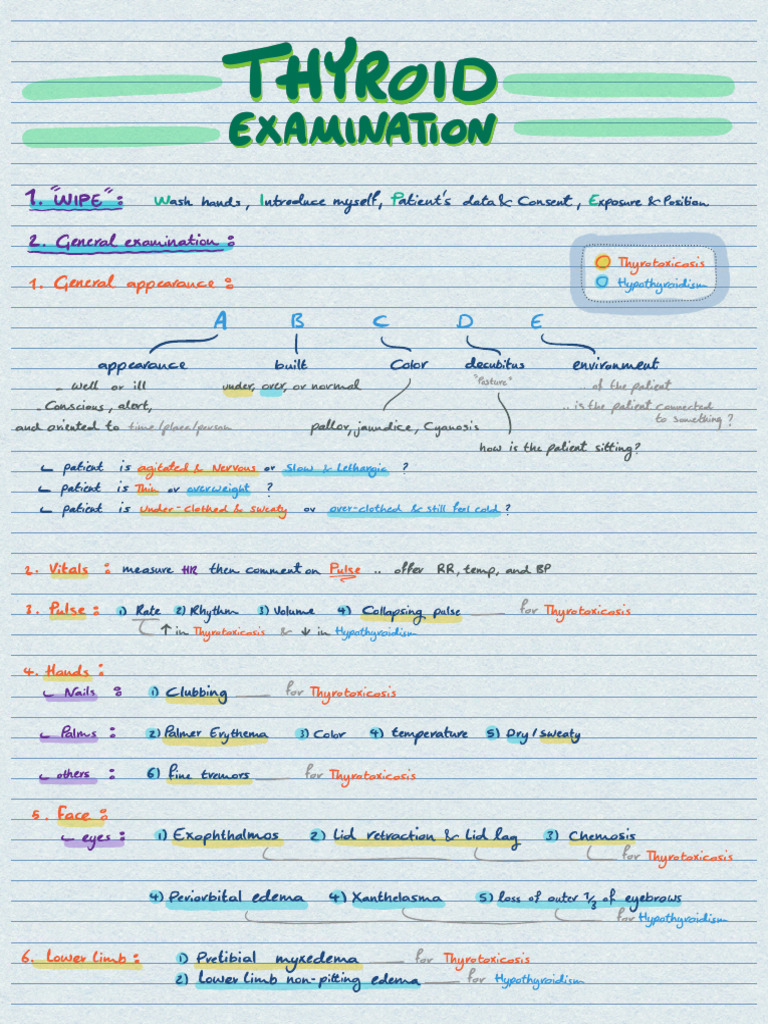 THYROID
EXAMINATION
1. "WIPE": Wash hands, Introduce myself, Patient's data & Consent, Exposure & Position
2. General examination:
Thyrotoxicosis
Hypothyroidism
1. General appearance:
A B C D E
appearance built Color decubitus environment
- well or ill under, over, or normal "Posture" .. of the patient
- Conscious, alert, .. is the patient connected
and oriented to time/place/person pallor, jaundice, Cyanosis to something?
how is the patient sitting?
patient is agitated & Nervous or Slow & Lethargic ?
patient is Thin or overweight ?
patient is under-clothed & sweaty or over-clothed & still feel cold ?
2. Vitals : measure HR then comment on Pulse .. offer RR, temp, and BP
3. Pulse : 1) Rate 2) Rhythm 3) Volume 4) Collapsing pulse for Thyrotoxicosis
↑ in Thyrotoxicosis & ↓ in Hypothyroidism
4. Hands :
Nails : 1) Clubbing for Thyrotoxicosis
Palms : 2) Palmer Erythema 3) Color 4) temperature 5) Dry / sweaty
others : 6) fine tremors for Thyrotoxicosis
5. Face :
eyes : 1) Exophthalmos 2) Lid retraction & Lid lag 3) Chemosis
for Thyrotoxicosis
4) Periorbital edema 4) Xanthelasma 5) loss of outer 1/3 of eyebrows
for Hypothyroidism
6. Lower limb : 1) Pretibial myxedema for Thyrotoxicosis
2) Lower limb non-pitting edema for Hypothyroidism